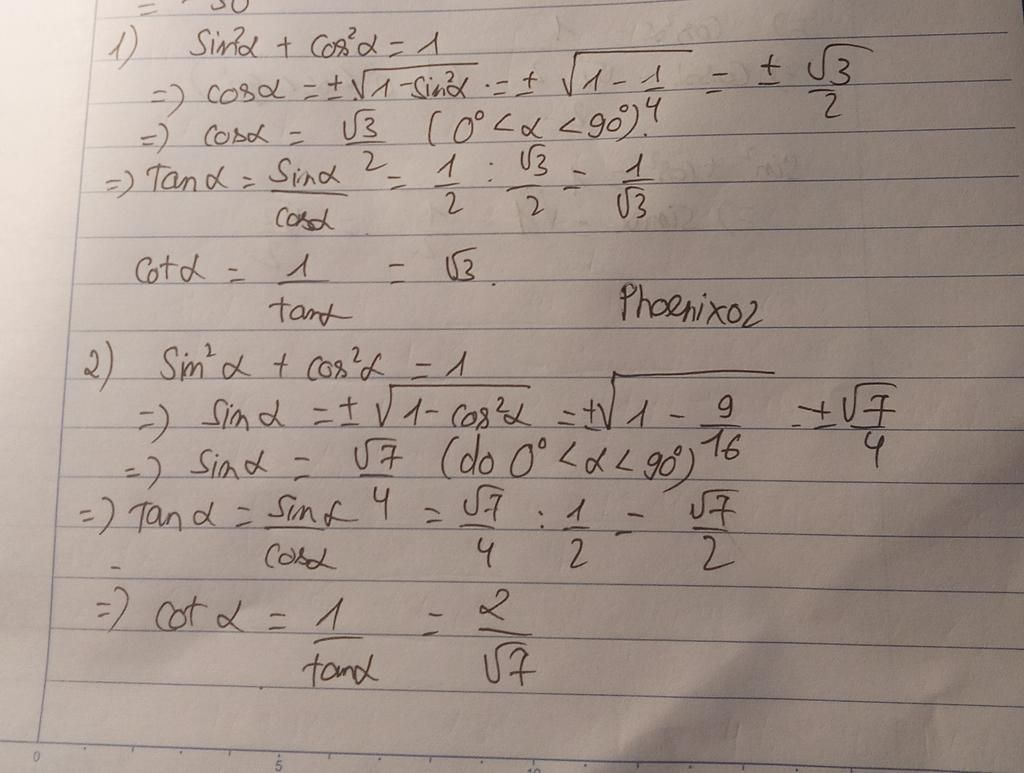 = 30
1) Sin²α + cos²α = 1
=) cosα = ±√(1-sin²α) = ± √(1 - 1/4) = ± √3/2
=) cosα = √3/2 (0° < α < 90°).
=) Tanα = Sinα/cosα = 1/2 : √3/2 = 1/√3
Cotα = 1/tanα = √3.
Phoenix02
2) Sin²α + cos²α = 1
=) Sinα = ± √(1 - cos²α) = ±√(1 - 9/16) = ±√7/4
=) Sinα = √7/4 (do 0° < α < 90°)
=) Tanα = Sinα/cosα = √7/4 : 1/2 = √7/2
=) cotα = 1/tanα = 2/√7
0 5 10